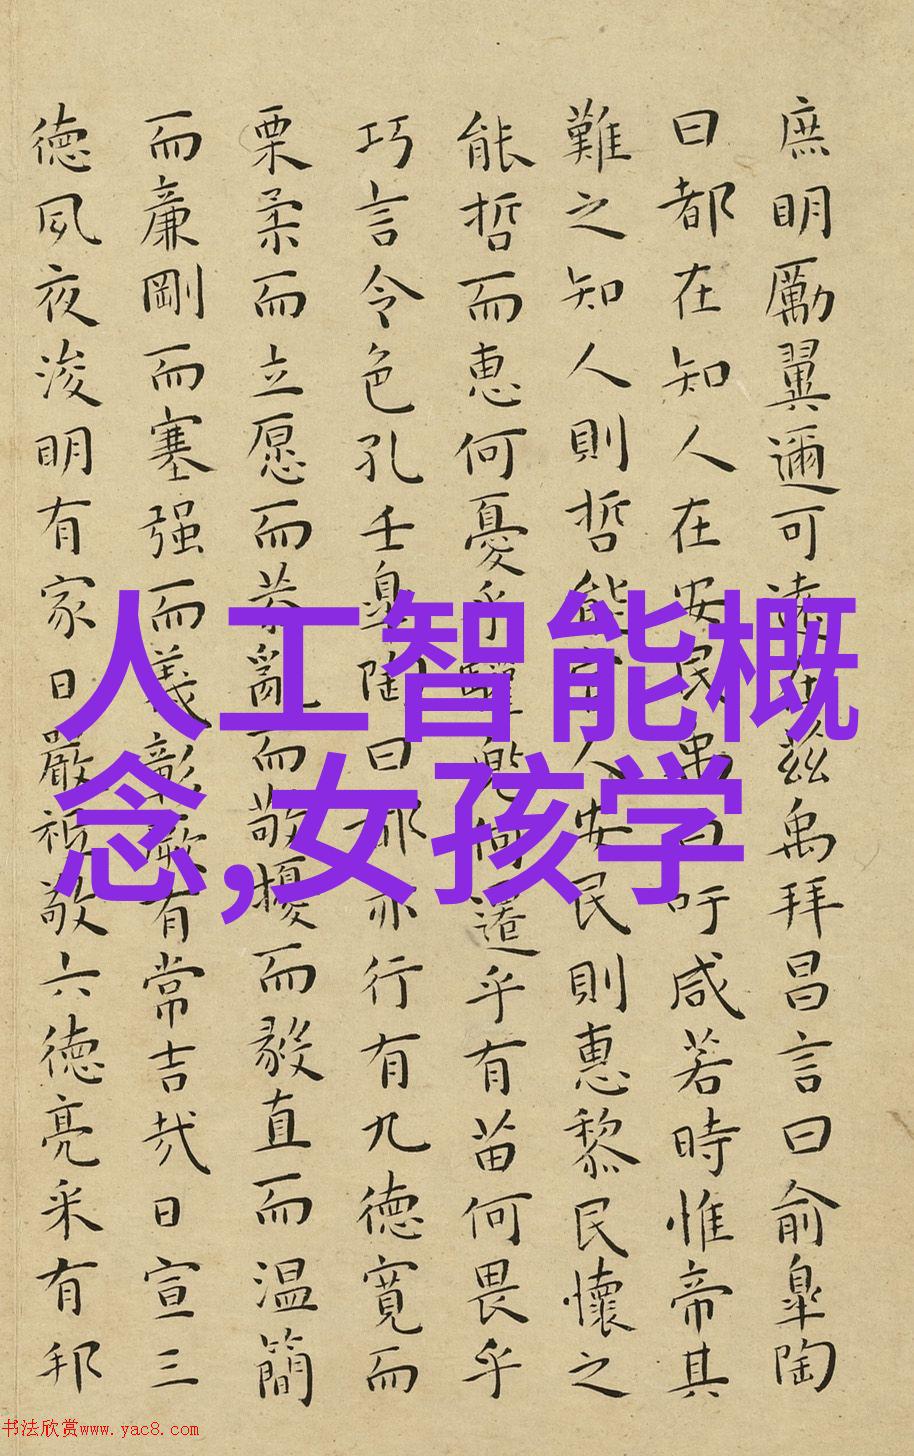 庶明勵翼邇可遠在茲禹拜昌言曰俞皋陶
曰都在知人在安民禹曰吁咸若時惟帝其
難之知人則哲能官人安民則惠黎民懷之
能哲而惠何憂乎驩兜何遷乎有苗何畏乎
巧言令色孔壬皋陶曰都亦行有九德寬而
栗柔而立愿而恭亂而敬擾而毅直而温簡
而廉剛而塞强而義彰厥有常吉哉日宣三
德夙夜浚明有家日嚴祗敬六德亮采有邦
人工智能概
念,女孩学
书法欣赏www.yac8.com